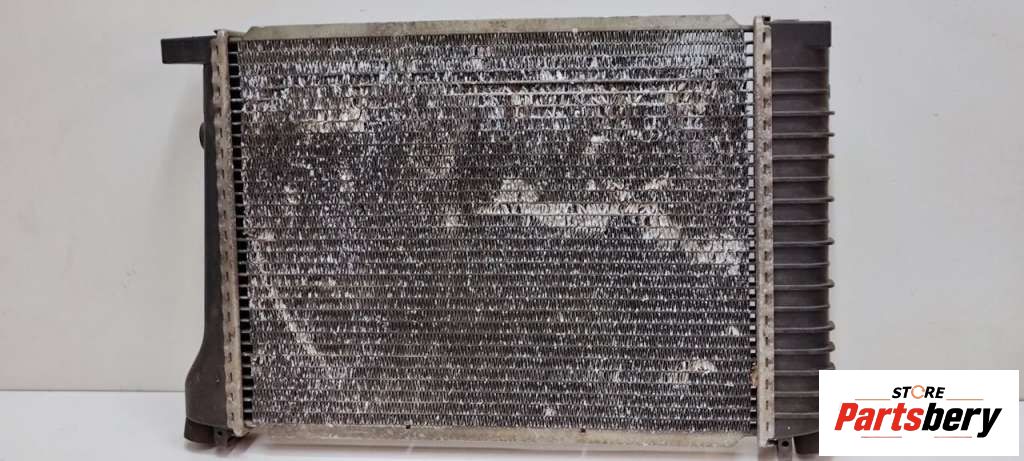 STORE
Partsbery